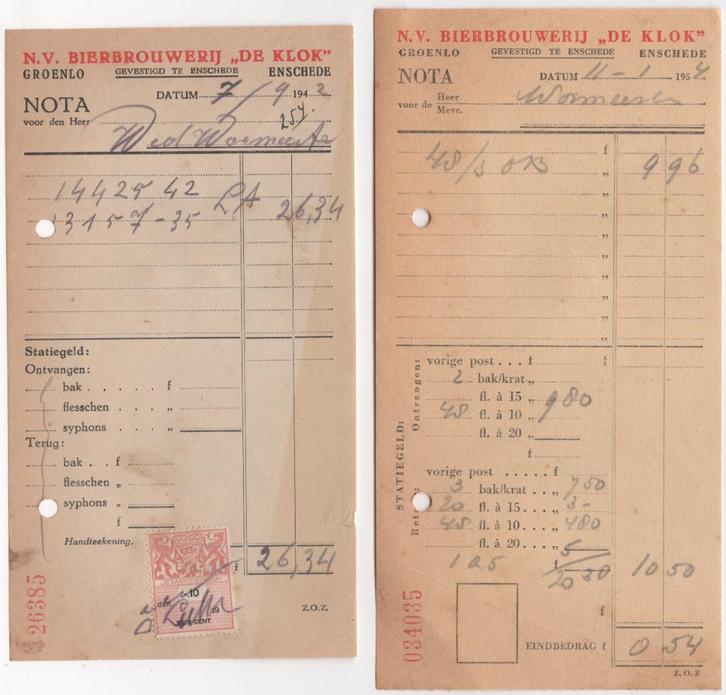 N.V. BIERBROUWERIJ „DE KLOK”
GROENLO GEVESTIGD TE ENSCHEDE ENSCHEDE
DATUM 7/9 1942
NOTA
voor den Heer
257.
Wed Wormeester
14425 42
LA 26,34
13157-35
Statiegeld:
Ontvangen:
bak . . . . . f
flesschen . . . „
syphons . . . „
Terug:
bak . . f
flesschen „
syphons „
f
Handteekening.
f 26,34
10
CENT
Z.O.Z.
26385
N.V. BIERBROUWERIJ „DE KLOK”
GROENLO GEVESTIGD TE ENSCHEDE ENSCHEDE
NOTA DATUM 11-1 1954
voor de Heer
Mevr.
Wormeester
48/3 OB f 9 96
„
„
„
„
„
„
„
„
STATIEGELD:
Ontvangen:
vorige post . . . f f
2 bak/krat „
fl. à 15 „
48 fl. à 10 „ 9 80
fl. à 20 „
f
Retour
vorige post . . . . . f
3 bak/krat . . „ 7 50
20 fl. à 15 . . . „ 3-
48 fl. à 10 . . . „ 4 80
fl. à 20 . . „
105 f 10 50
f
EINDBEDRAG f 0 54
Z.O.Z
034035